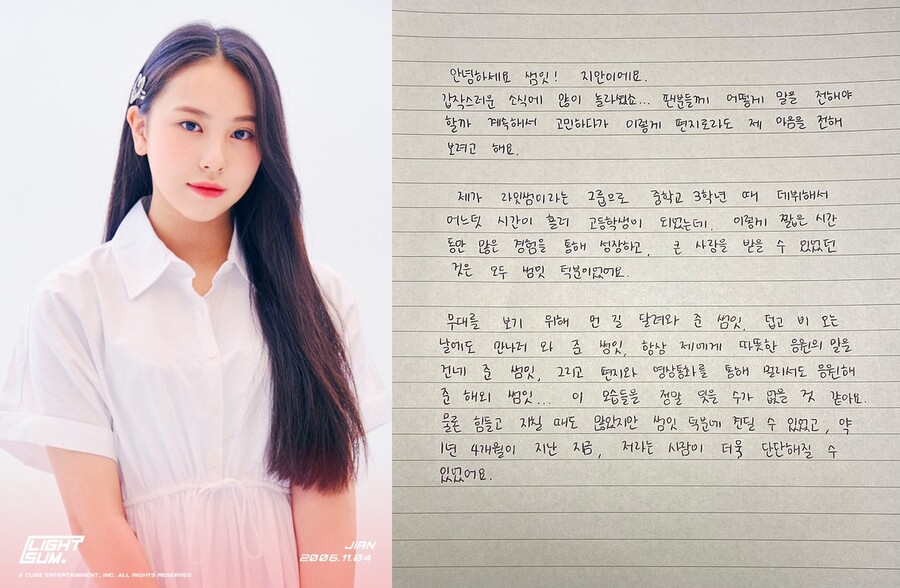 LIGHT
SUM.
© CUBE ENTERTAINMENT, INC. ALL RIGHTS RESERVED
JIAN
2006.11.04
안녕하세요 썸잇! 지안이에요.
갑작스러운 소식에 많이 놀라셨죠... 팬분들께 어떻게 말을 전해야
할까 계속해서 고민하다가 이렇게 편지로라도 제 마음을 전해
보려고 해요.
제가 라잇썸이라는 그룹으로 중학교 3학년 때 데뷔해서
어느덧 시간이 흘러 고등학생이 되었는데, 이렇게 짧은 시간
동안 많은 경험을 통해 성장하고, 큰 사랑을 받을 수 있었던
것은 모두 썸잇 덕분이었어요.
무대를 보기 위해 먼 길 달려와 준 썸잇, 덥고 비 오는
날에도 만나러 와 준 썸잇, 항상 저에게 따뜻한 응원의 말을
건네 준 썸잇, 그리고 편지와 영상통화를 통해 멀리서도 응원해
준 해외 썸잇... 이 모습들을 정말 잊을 수가 없을 것 같아요.
물론 힘들고 지칠 때도 많았지만 썸잇 덕분에 견딜 수 있었고, 약
1년 4개월이 지난 지금, 저라는 사람이 더욱 단단해질 수
있었어요.